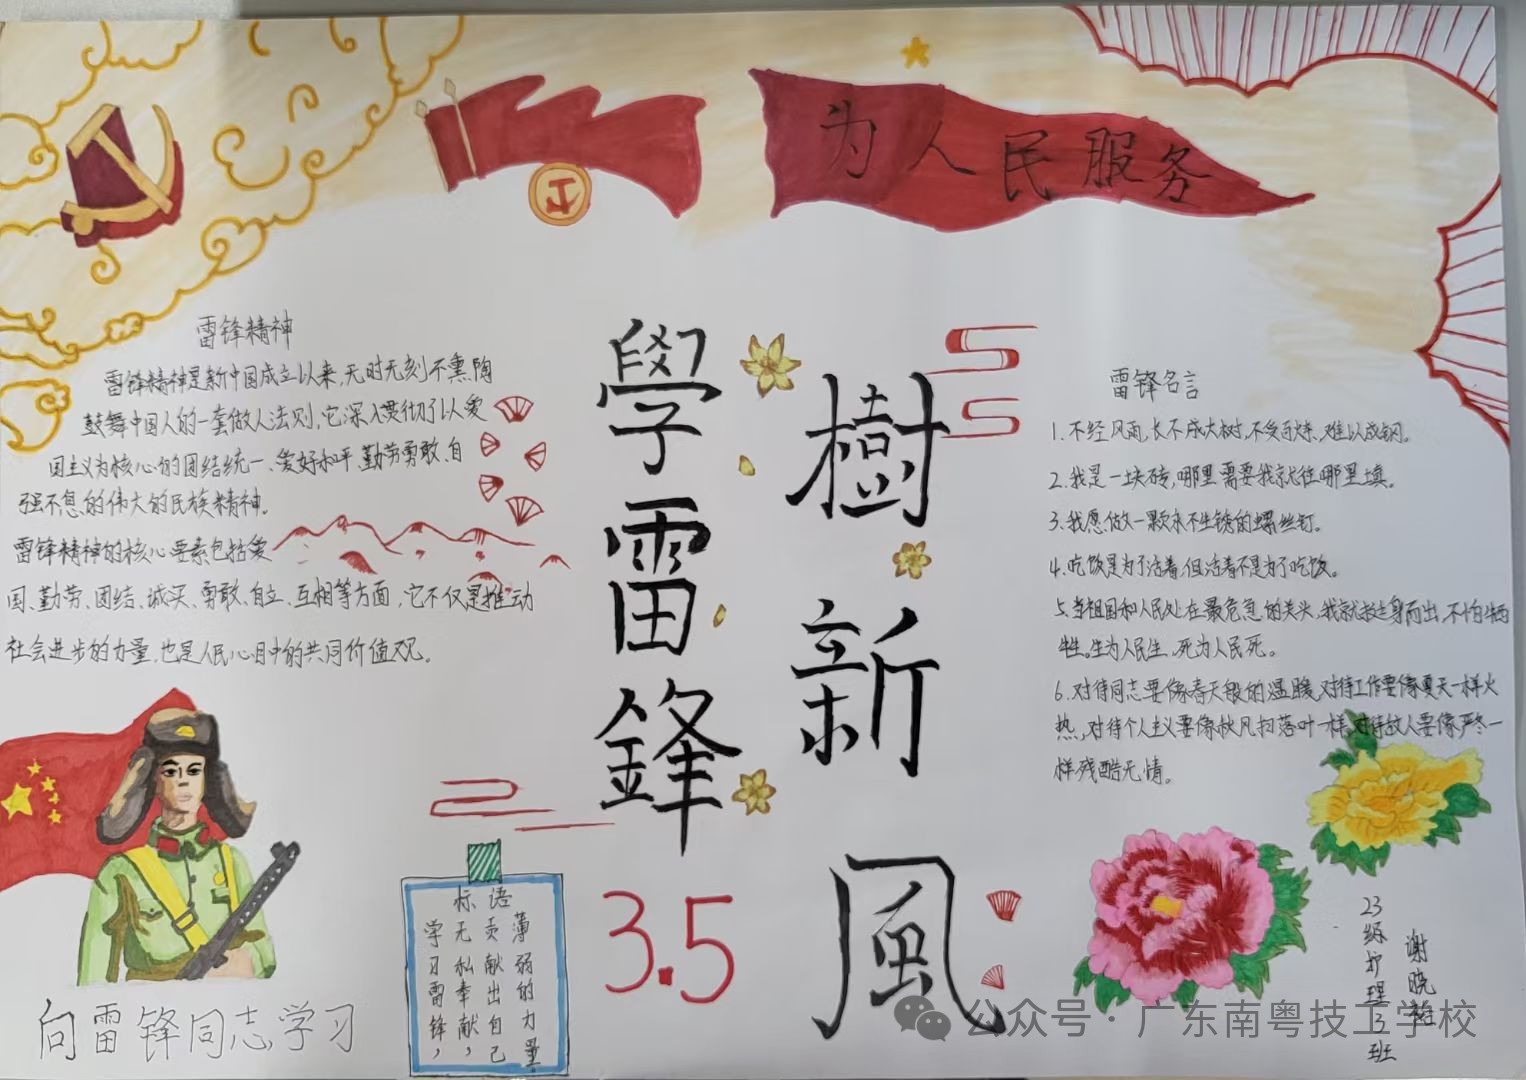 为人民服务
學雷鋒
樹新風
3.5
雷锋精神
雷锋精神是新中国成立以来,无时无刻不熏陶
鼓舞中国人的一套做人法则,它深入贯彻了以爱
国主义为核心的团结统一、爱好和平、勤劳勇敢、自
强不息、的伟大的民族精神。
雷锋精神的核心要素包括爱
国、勤劳、团结、诚实、勇敢、自立、互相等方面,它不仅是推动
社会进步的力量,也是人民心目中的共同价值观。
向雷锋同志学习
标语
学习雷锋,
无私奉献,
贡献出自己
薄弱的力量
雷锋名言
1.不经风雨,长不成大树,不受百炼,难以成钢。
2.我是一块砖,哪里需要我就往哪里填。
3.我愿做一颗永不生锈的螺丝钉。
4.吃饭是为了活着,但活着不是为了吃饭。
5.当祖国和人民处在最危急的关头,我就挺身而出,不怕牺
牲。生为人民生、死为人民死。
6.对待同志要像春天般的温暖,对待工作要像夏天一样火
热,对待个人主义要像秋风扫落叶一样,对待敌人要像严冬一
样残酷无情。
23级护理3班
谢晓
公众号·广东南粤技工学校